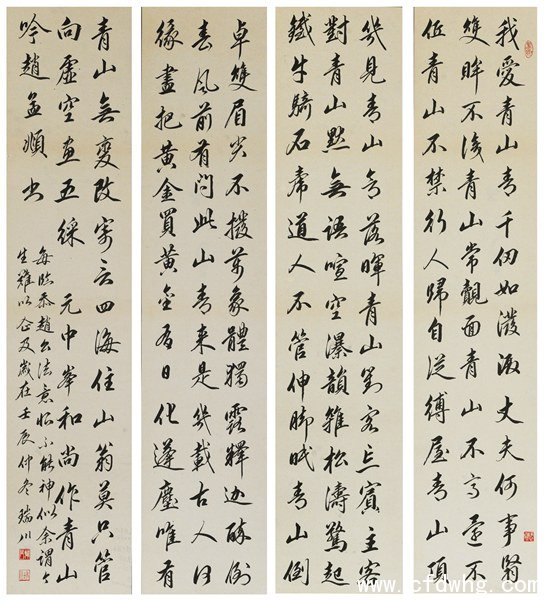 我愛青山青千仞如潑汲丈夫何事腎
雙眸不淺青山常覿面青山不高還不
低青山不禁行人歸自從縛屋青山頂
幾見青山多落暉青山對客忘賓主客
對青山默無語喧空瀑韻雜松濤驚起
鐵牛騎石虎道人不管伸脚眠青山倒
卓雙眉尖不撥萬象體獨露釋迦醉倒
春風前有問此山青來是幾載古人因
緣盡把黃金買黃金有日化蓬塵唯有
青山無變改寄言四海住山翁莫只管
向虛空畫五綵 元中峯和尚作青山
吟趙孟頫書
每臨恭趙公法意恨不能神似余謂今
生難以企及歲在壬辰仲冬瑞川
www.cfdwhg.com